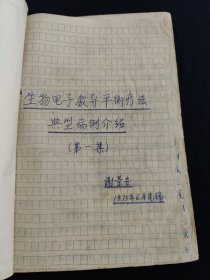 生物电子激导平衡疗法
典型病例介绍
(第一集)
谢景奎
1975年6月完稿